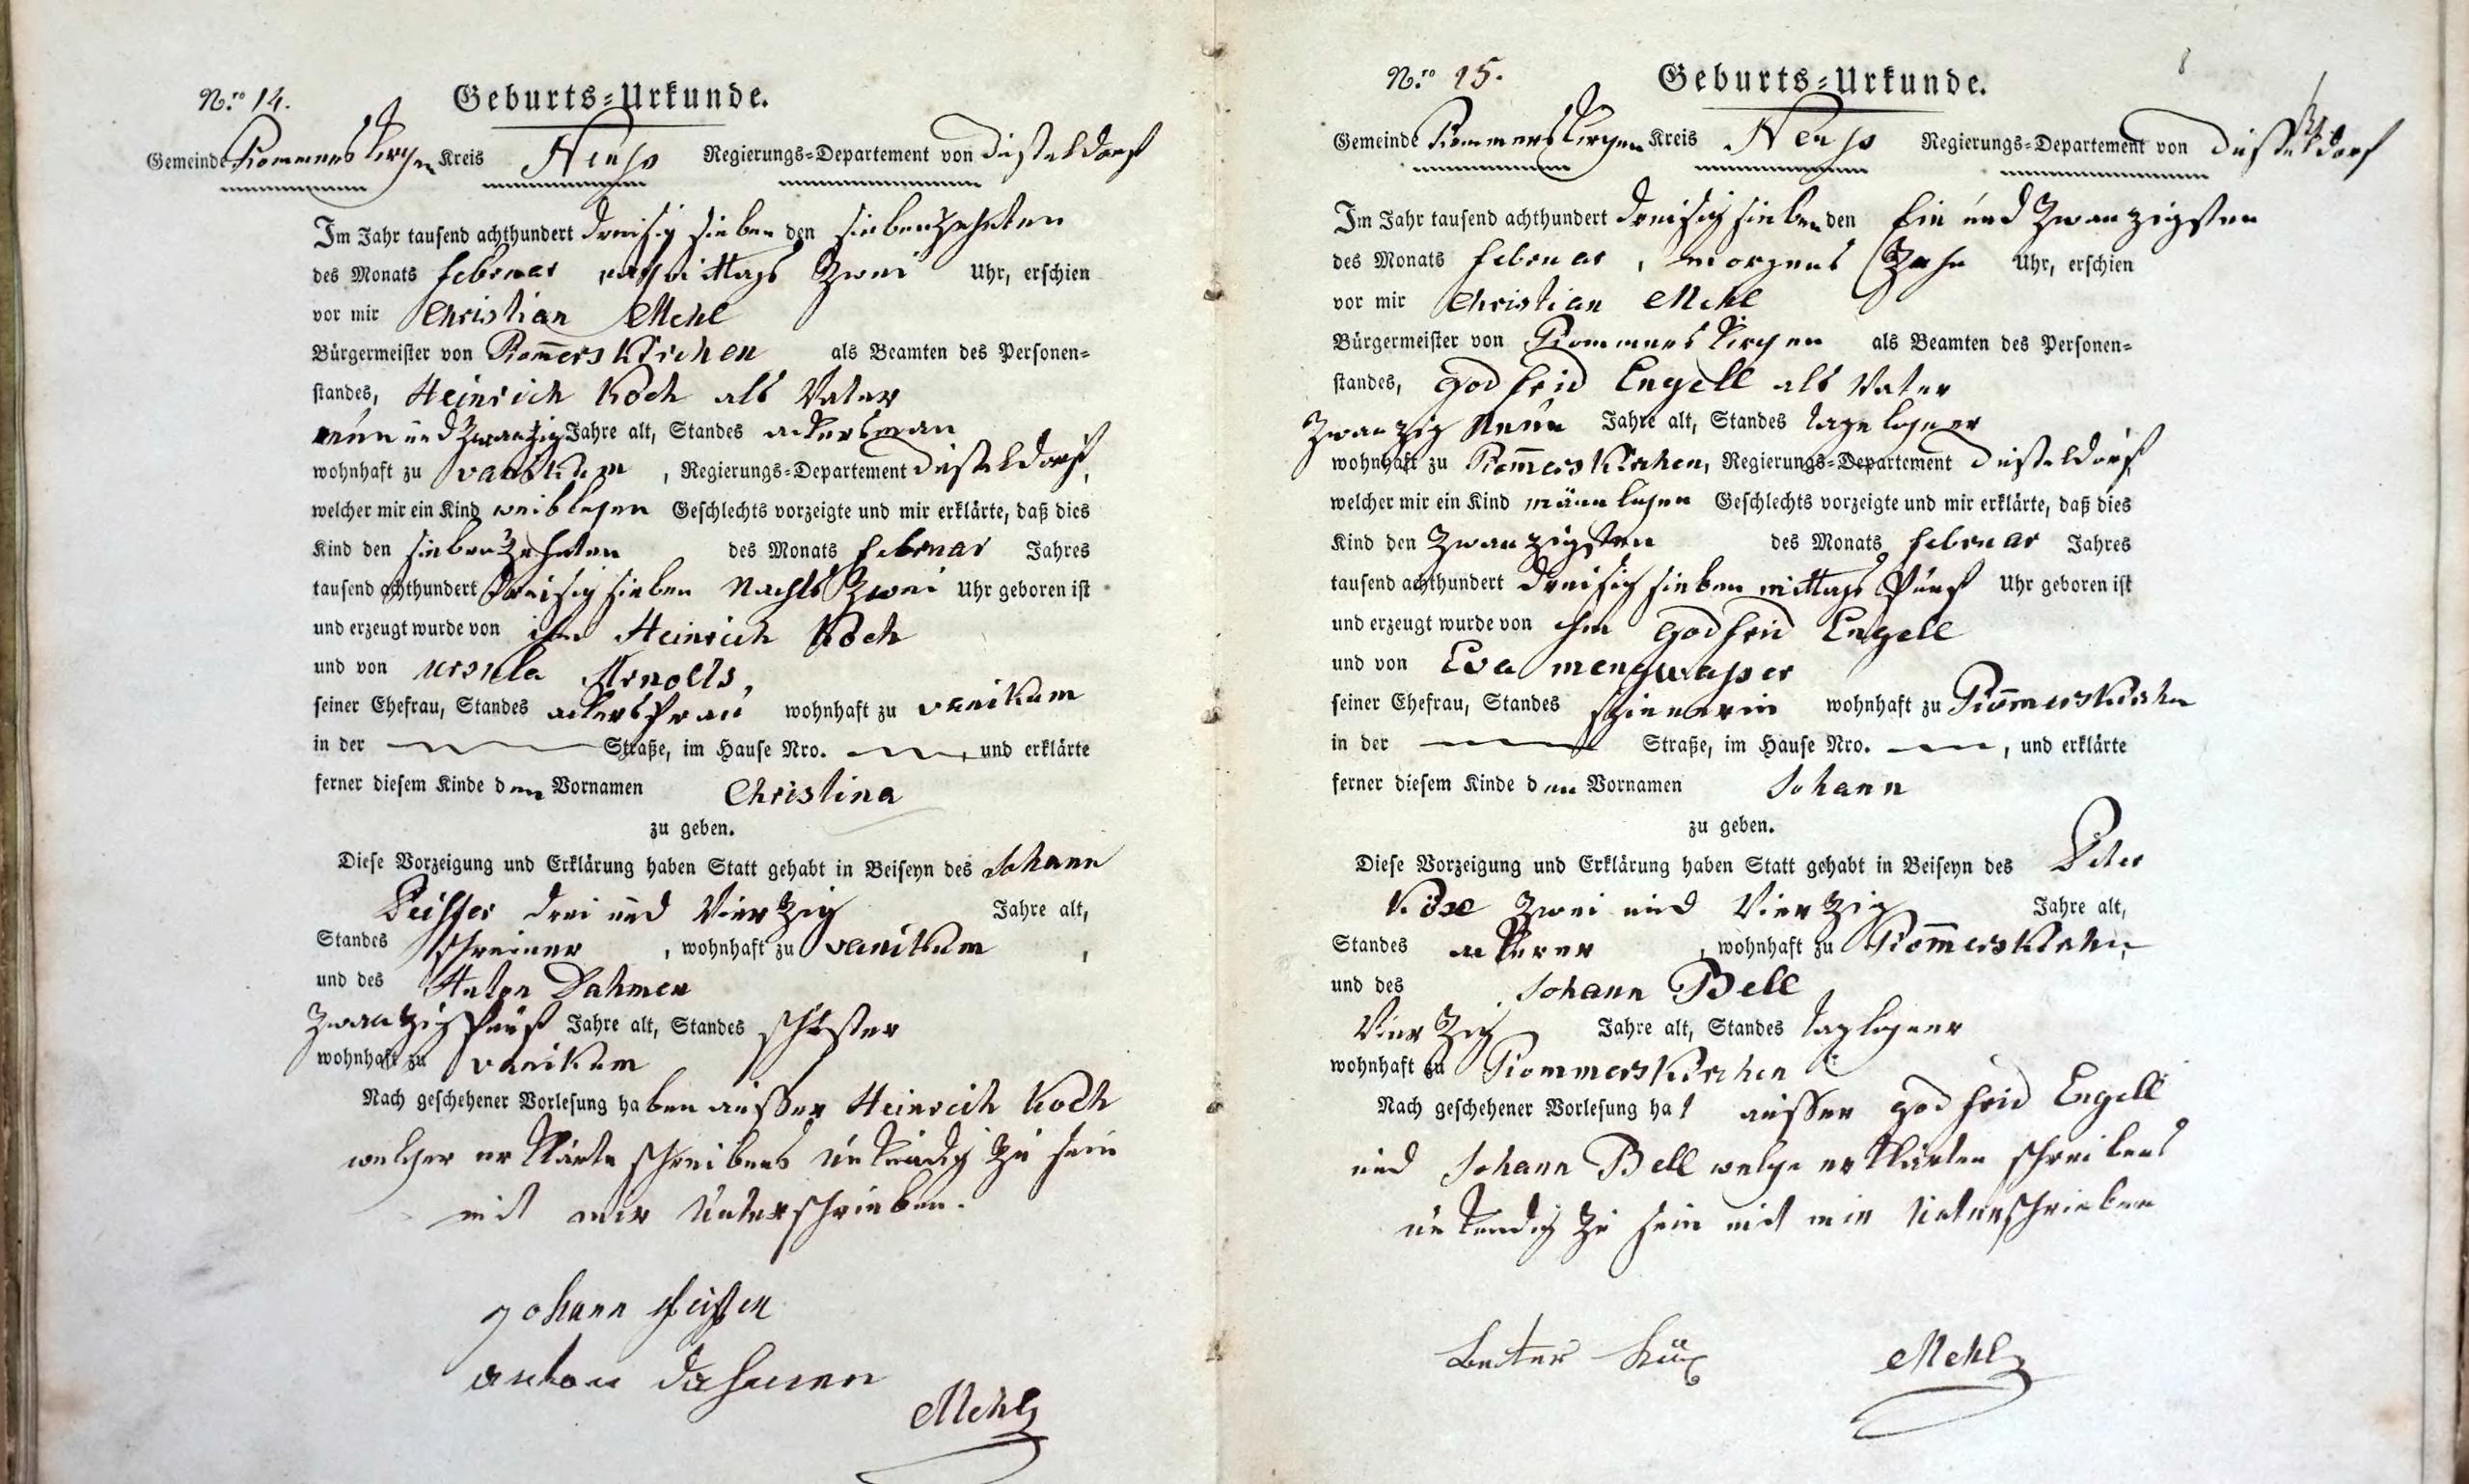 N.ro 14.
Geburts-Urkunde.
Gemeinde Rommerskirchen Kreis Neuss Regierungs-Departement von Düsseldorf
Im Jahr tausend achthundert dreisig sieben den siebenzehnten
des Monats februar nachmittags zwei Uhr, erschien
vor mir Christian Mehl
Bürgermeister von Rom̄erskirchen als Beamten des Personen-
standes, Heinrich Koch als Vater
neun und zwanzig Jahre alt, Standes ackersman
wohnhaft zu vanikum, Regierungs-Departement Düsseldorf,
welcher mir ein Kind weiblichen Geschlechts vorzeigte und mir erklärte, daß dies
Kind den siebenzehnten des Monats februar Jahres
tausend achthundert dreisig sieben Nachts zwei Uhr geboren ist
und erzeugt wurde von ihm Heinrich Koch
und von ursula Arnolts,
seiner Ehefrau, Standes ackersfrau wohnhaft zu vanikum
in der Straße, im Hause Nro. und erklärte
ferner diesem Kinde den Vornamen Christina
zu geben.
Diese Vorzeigung und Erklärung haben Statt gehabt in Beiseyn des Johann
drei und Vierzig Jahre alt,
Standes schreiner, wohnhaft zu vanikum,
und des Anton Dahmen
zwanzig fünf Jahre alt, Standes schuster
wohnhaft zu vanikum
Nach geschehener Vorlesung haben ausser Heinrich Koch
welcher erklärte schreibens unkundig zu sein
mit mir Unterschrieben.
Johann
anton dahmen
Mehl
N.ro 15.
Geburts-Urkunde.
Gemeinde Rommerskirchen Kreis Neuss Regierungs-Departement von Düsseldorf
Im Jahr tausend achthundert dreisig sieben den Ein und zwanzigsten
des Monats februar, morgens zehn Uhr, erschien
vor mir Christian Mehl
Bürgermeister von Rommerskirchen als Beamten des Personen-
standes, godfrid Engell als Vater
zwanzig Neun Jahre alt, Standes tagelohner
wohnhaft zu Rom̄erskirchen, Regierungs-Departement Düsseldorf,
welcher mir ein Kind männlichen Geschlechts vorzeigte und mir erklärte, daß dies
Kind den zwanzigsten des Monats februar Jahres
tausend achthundert dreisig sieben mittags fünf Uhr geboren ist
und erzeugt wurde von ihm godfrid Engell
und von Eva mengwasser
seiner Ehefrau, Standes spinnerin wohnhaft zu Rom̄erskirchn
in der Straße, im Hause Nro. , und erklärte
ferner diesem Kinde den Vornamen Johann
zu geben.
Diese Vorzeigung und Erklärung haben Statt gehabt in Beiseyn des Peter
zwei und Vierzig Jahre alt,
Standes ackerer, wohnhaft zu Rom̄erskirchn,
und des Johann Bell
Vierzig Jahre alt, Standes taglohner
wohnhaft zu Rommerskirchen
Nach geschehener Vorlesung hat ausser godfrid Engell
und Johann Bell welche erklärten schreibens
unkundig zu sein mit mir Unterschrieben
Mehl